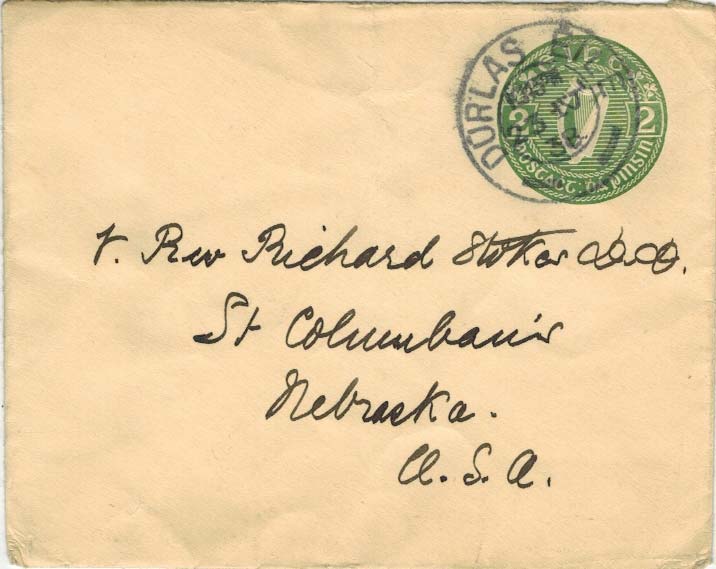 DURLAS
23
38
2 2
postact pinsin
V. Rev Richard Stokes D.D.
St Columban's
Nebraska.
U.S.A.